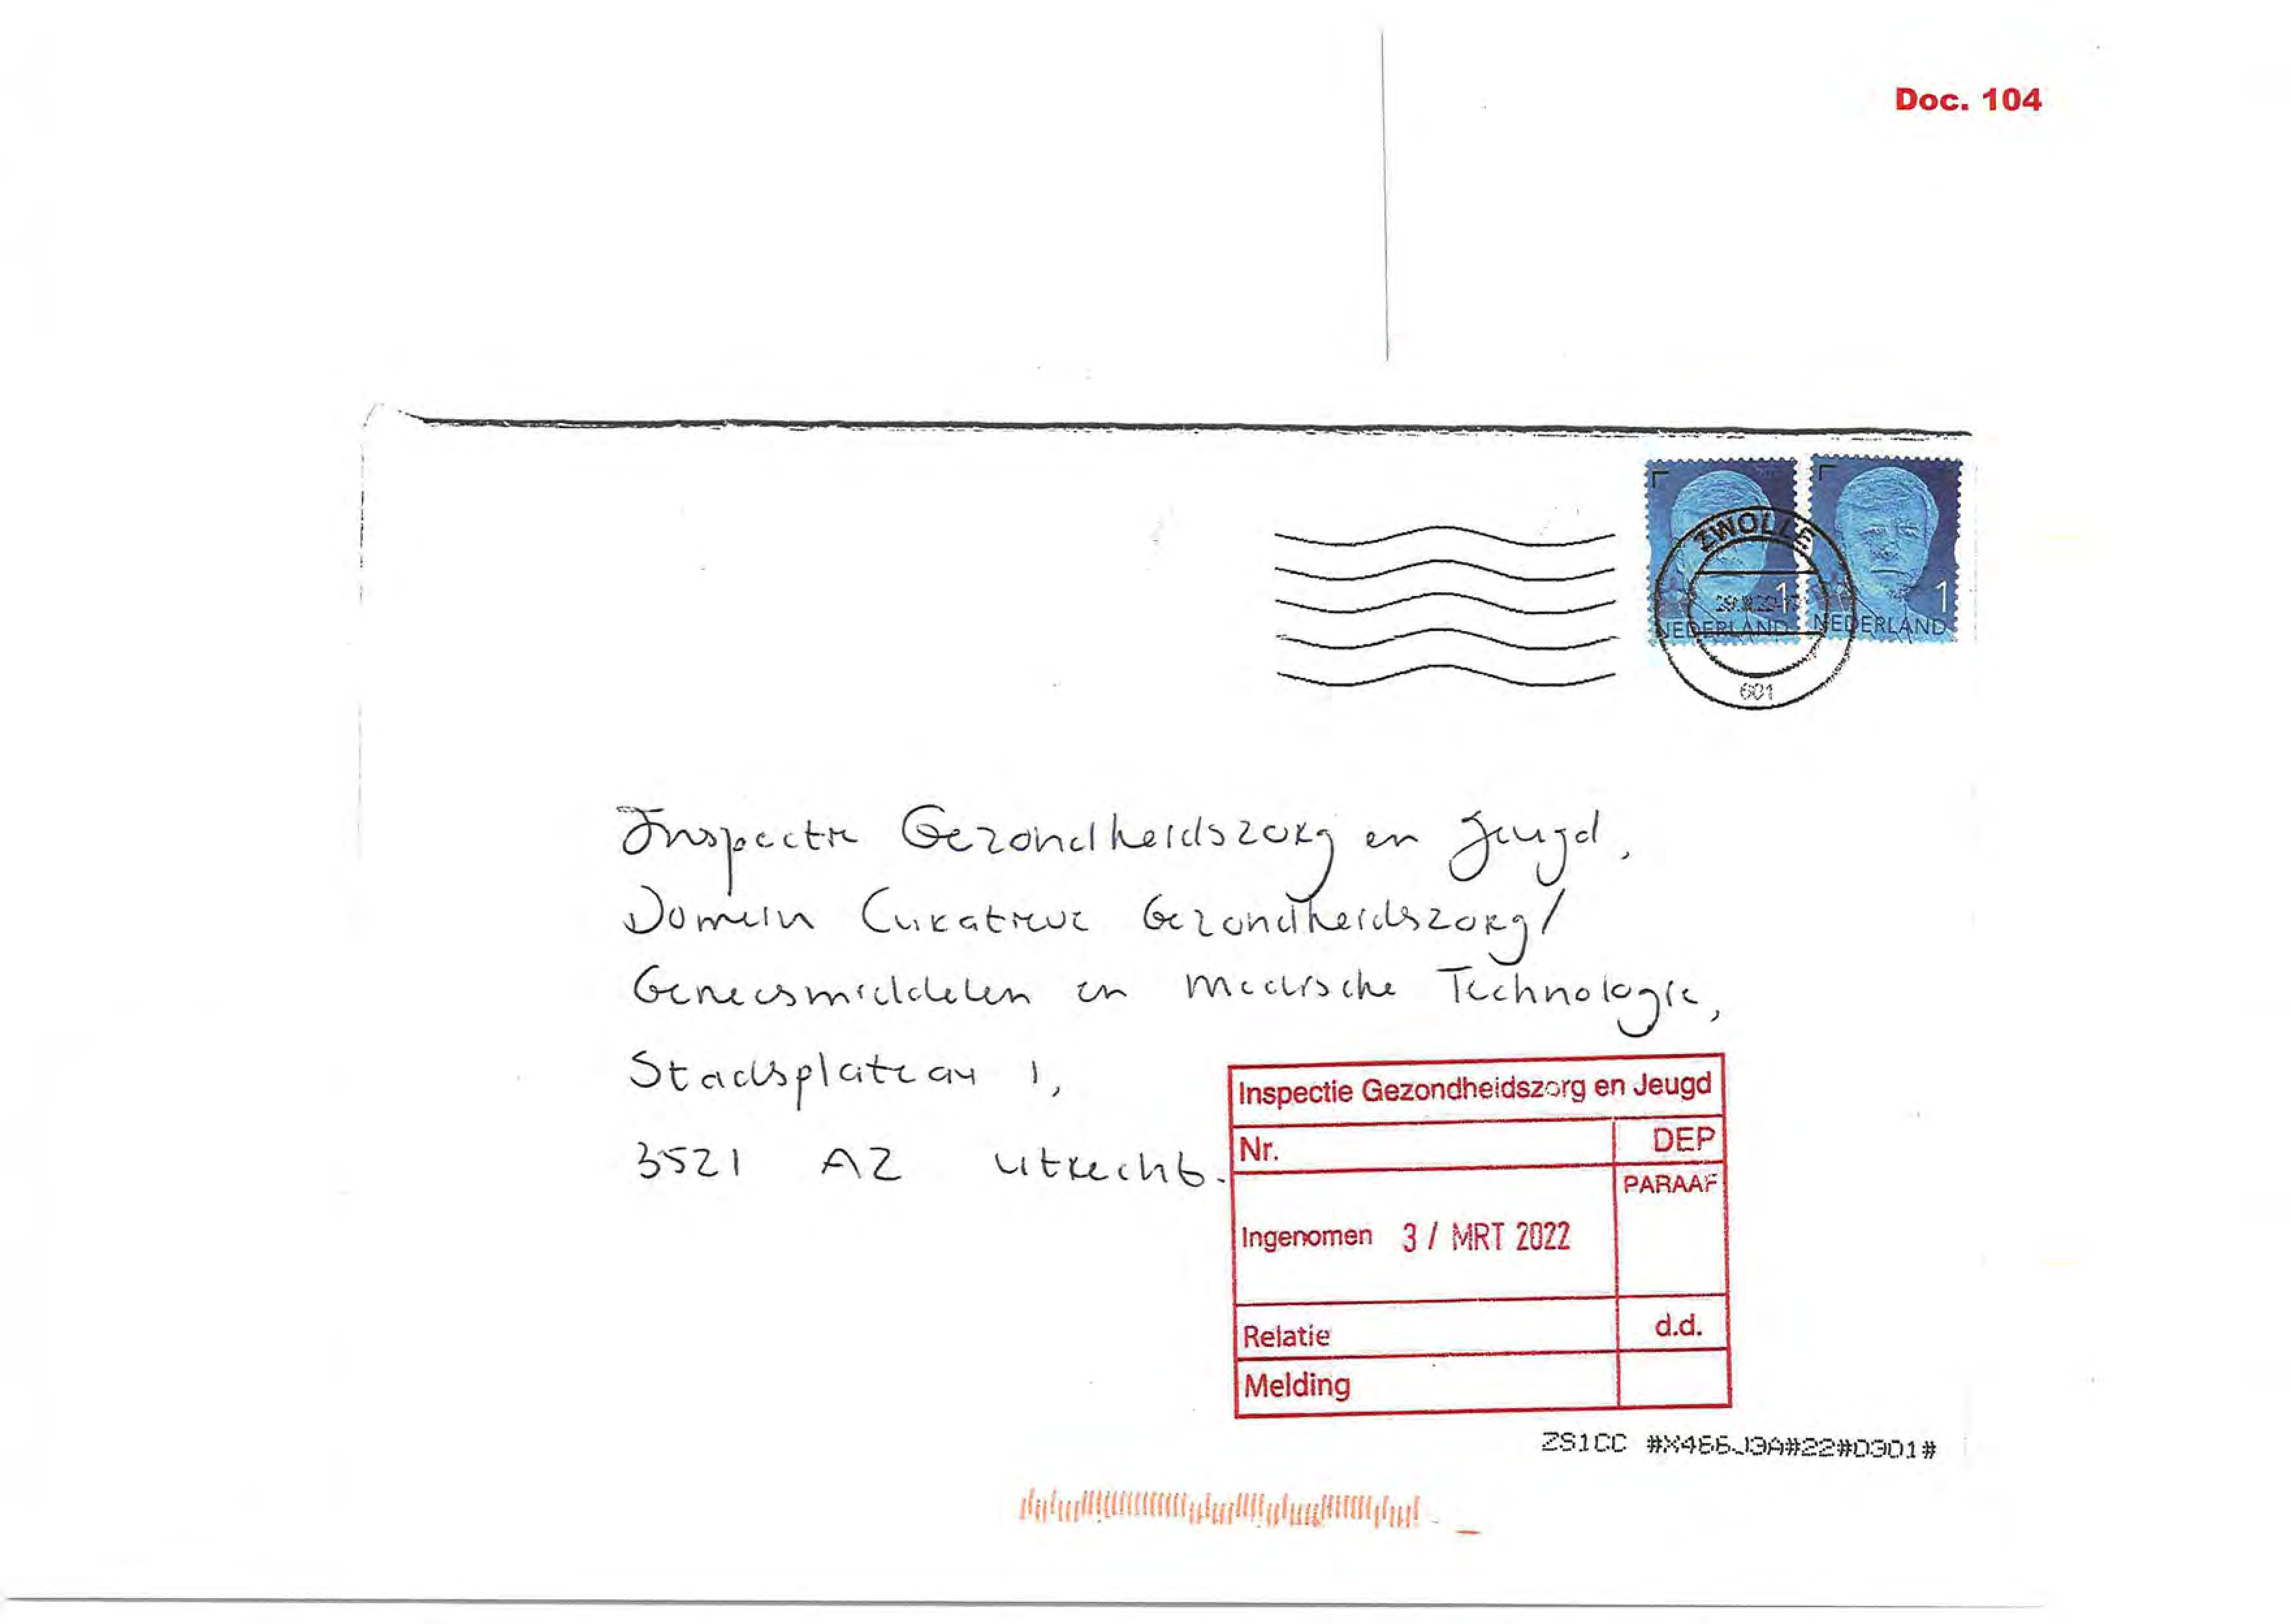 Doc. 104
ZWOLLE
1
1
NEDERLAND
NEDERLAND
601
Inspectie Gezondheidszorg en Jeugd,
Domein Curatieve Gezondheidszorg/
Geneesmiddelen en Medische Technologie,
Stadsplateau 1,
3521 AZ Utrecht.
Inspectie Gezondheidszorg en Jeugd
Nr.
DEP
PARAAF
Ingenomen 3 / MRT 2022
Relatie
d.d.
Melding
ZS1CC #X466J9A#22#0301#